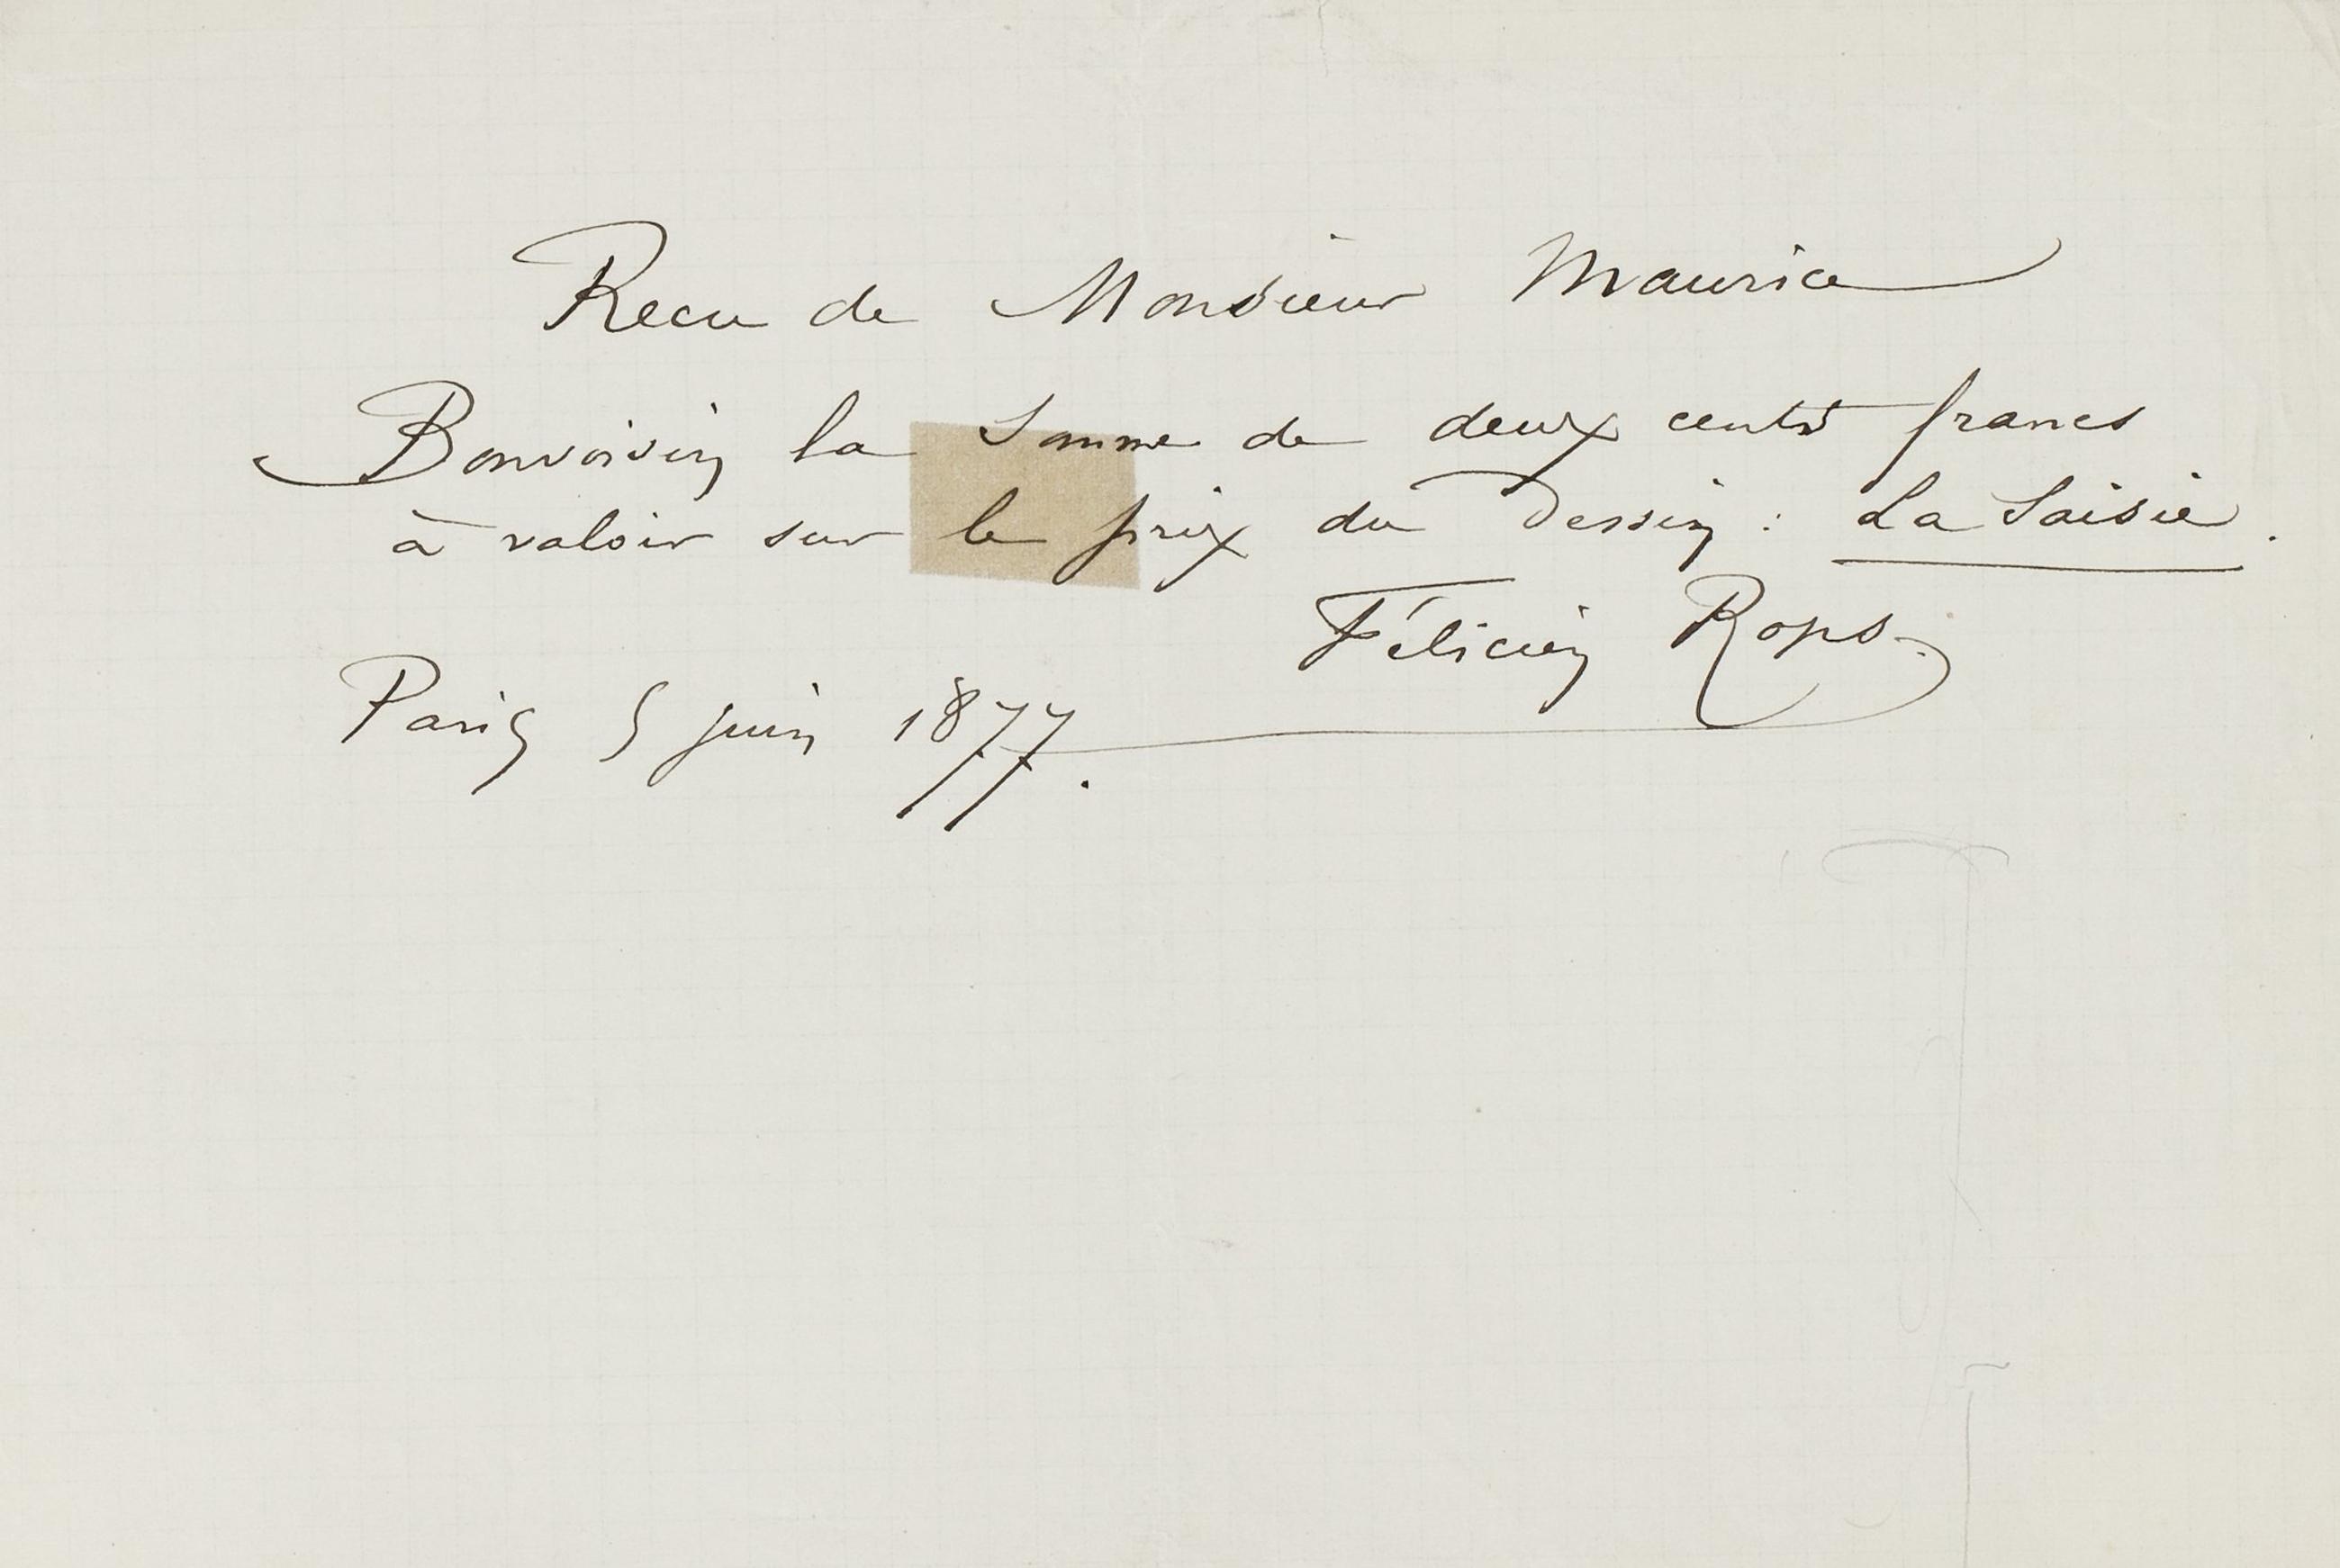 Recu de Monsieur Maurice
Bonvoisin la Somme de deux cents francs
à valoir sur le prix du Dessin : La Saisie.
Félicien Rops.
Paris 5 juin 1877.